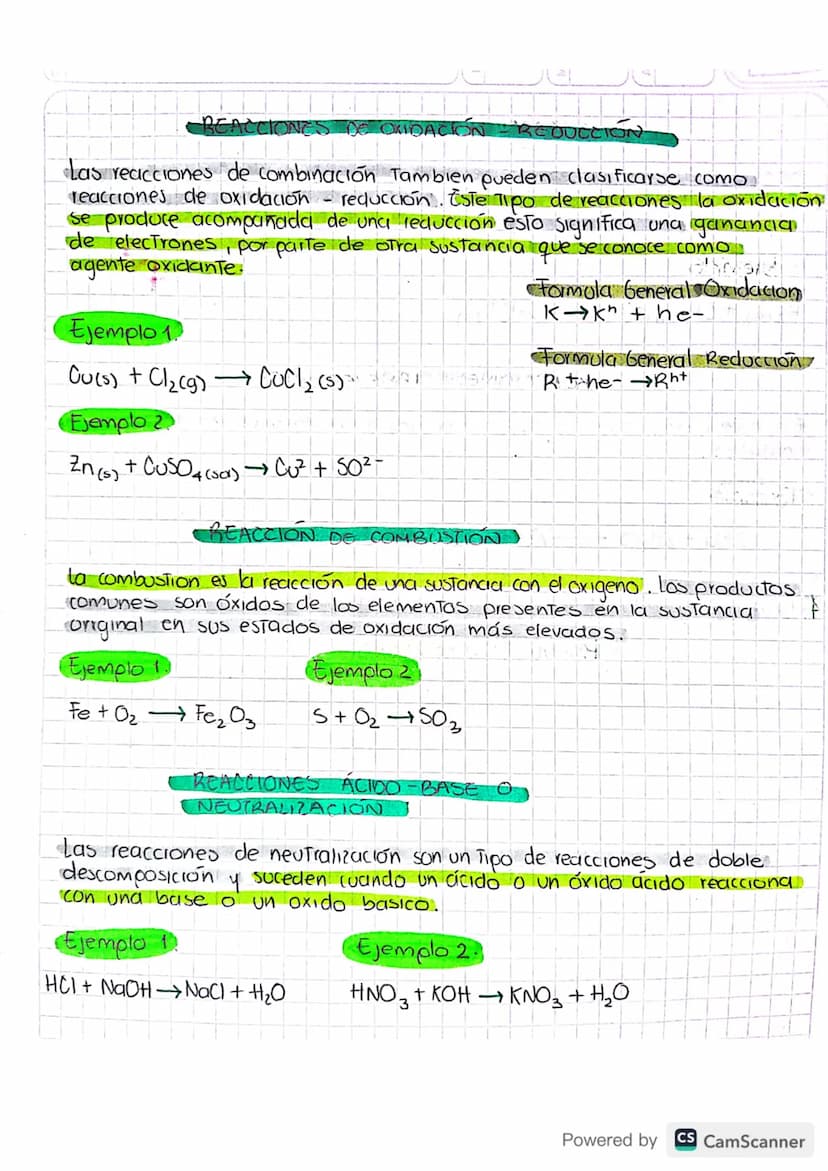 REACCIONES DE OXIDACIÓN - REDUCCIÓN
Las reacciones de combinación Tambien pueden clasificarse como
reacciones de oxidación - reducción. Este Tipo de reacciones la oxidación
se produce acompañada de una reducción esto significa una ganancia
de electrones, por parte de otra sustancia que se conoce como
agente oxidante.
Formola General Oxidacion
K→Kⁿ + he-
Ejemplo 1.
Formula General Reducción
Cu(s) + Cl₂(g) → CuCl₂ (s)
R + he- →Rʰ⁺
Ejemplo 2.
Zn(s) + CuSO₄(sa) → Cu² + SO²⁻
REACCIÓN DE COMBUSTIÓN
La combustion es la reacción de una sustancia con el oxigeno. Los productos
comunes son óxidos de los elementos presentes en la sustancia
original en sus estados de oxidación más elevados.
Ejemplo 1. Ejemplo 2
Fe + O₂ → Fe₂O₃ S + O₂ → SO₃
REACCIONES ÁCIDO - BASE O
NEUTRALIZACIÓN
Las reacciones de neutralización son un Tipo de reacciones de doble
descomposición y suceden cuando un ácido o un óxido ácido reacciona
con una base o un oxido basico.
Ejemplo 1 Ejemplo 2.
HCl + NaOH → NaCl + H₂O HNO₃ + KOH → KNO₃ + H₂O
Powered by CS CamScanner